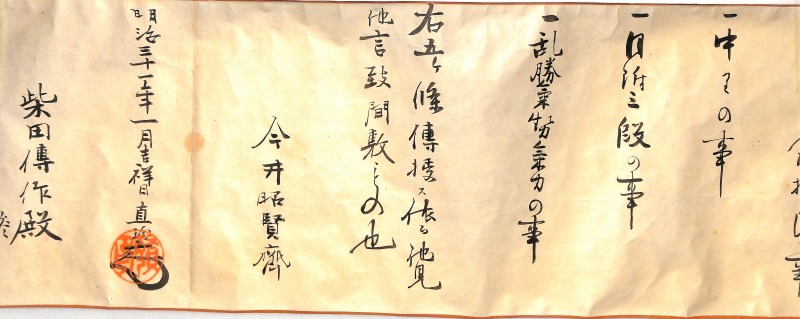 一中王の事
一目附三段の事
一乱勝氣勢氣力の事
右五ヶ條傳授
他言致間敷もの也
今井昭賢齋
明治三十二年一月吉祥日 直
柴田傳作殿